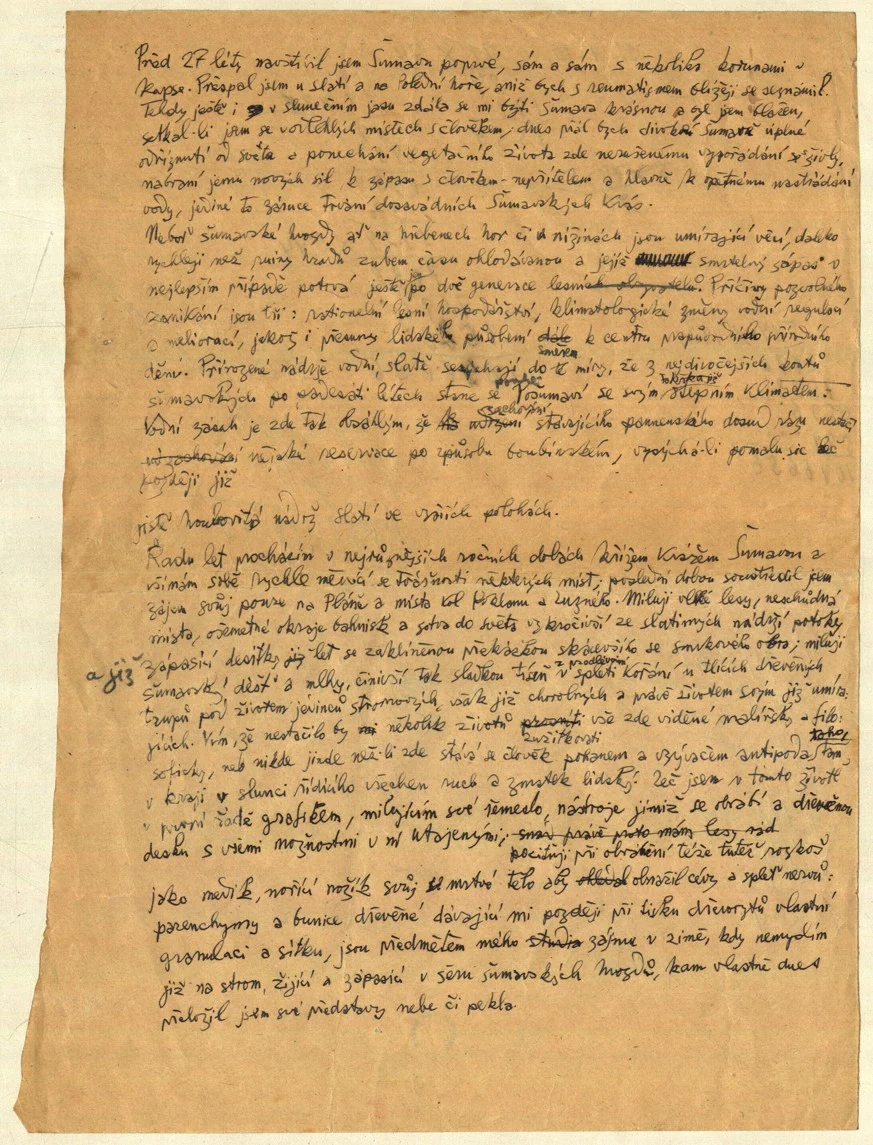 Před 27 léty navštívil jsem Šumavu poprvé, sám a sám s několika korunami v
kapse. Přespal jsem u slatí a na Polední hoře, aniž bych s reumatismem blížeji se seznámil.
Tehdy ještě i v slunečním jasu zdála se mi býti Šumava krásnou a byl jsem blažen,
setkal-li jsem se v odlehlých místech s člověkem, dnes přál bych divoké Šumavě úplné
odříznutí od světa a ponechání vegetačního života zde nerušenému vypořádání se živly,
nabraní jemu nových sil k zápasu s člověkem-nepřítelem a hlavně k opětnému nastřádání
vody, jediné to záruce trvání dosavádních Šumavských krás.
Neboť šumavské hvozdy ať na hřebenech hor či v nížinách jsou umírající věcí, daleko
rychleji než ruiny hradů zubem času ohlodávanou a jejíž smrtelný zápas v
nejlepším případě potrvá ještě po dvě generace Příčiny pozvolného
zanikání jsou tři: rationelní lesní hospodářství, klimatologické změny vodní regulací
a meliorací, jakož i přesuny lidského působení k centru prapůvodního přírodního
směrem
dění. Přirozené nádrže vodní, slatě do té míry, že z nejdivočejších koutů
později
šumavských po padesáti létech stane se Posumaví se svým stepním klimatem.
Vodní zásah je zde tak obsáhlým, že stávajícího panenského dosud rázu nestačí
zachování
nějaké reservace po způsobu boubínském, vysýchá-li pomalu sic
později již
jistě houbovitá nádrž slatí ve vyšších polohách.
Řadu let procházím v nejrůznějších ročních dobách křížem krážem Šumavou a
všímám si rychle měnící se tvářnosti některých míst; poslední dobou soustředil jsem
zájem svůj pouze na Pláně a místa kol Roklanu a Luzného. Miluji velké lesy, neschůdná
místa, ošemetné okraje bahnisk a sotva do světa vykročivší ze slatinných nádrží potoky
a již
zápasící desítky let se zaklíněnou překážkou skácevšího se smrkového obra; miluji
šumavský déšť a mlhy, činivší tak sladkou tíseň v spleti kořání u tlících dřevěných
trupů pod životem jedinců stromových, však již chorobných a právě životem svým již umíra-
jících. Vím, že nestačilo by několik životů vše zde viděné malířsky a filo-
zužitkovati
soficky, neb nikde jinde než-li zde stává se člověk pohanem a vzývačem antipoda
v kraji v slunci řídícího všechen ruch a zmatek lidský! Leč jsem v tomto životě
v první řadě grafikem, milujícím své řemeslo, nástroje jimiž se obrábí a dřevěnou
desku s všemi možnostmi v ní utajenými; snad právě proto mám lesy rád
pociťuji při obrábění téže tutéž rozkoš
jako medik, nořící nožík svůj v mrtvé tělo aby obnažil cévy a spleť nervů:
parenchymy a bunice dřevěné dávající mi později při tisku dřevorytů vlastní
granulaci a síťku, jsou předmětem mého studia zájmu v zimě, kdy nemyslím
již na strom, žijící a zápasící v šeru šumavských hvozdů, kam vlastně dnes
přeložil jsem své představy nebe či pekla.